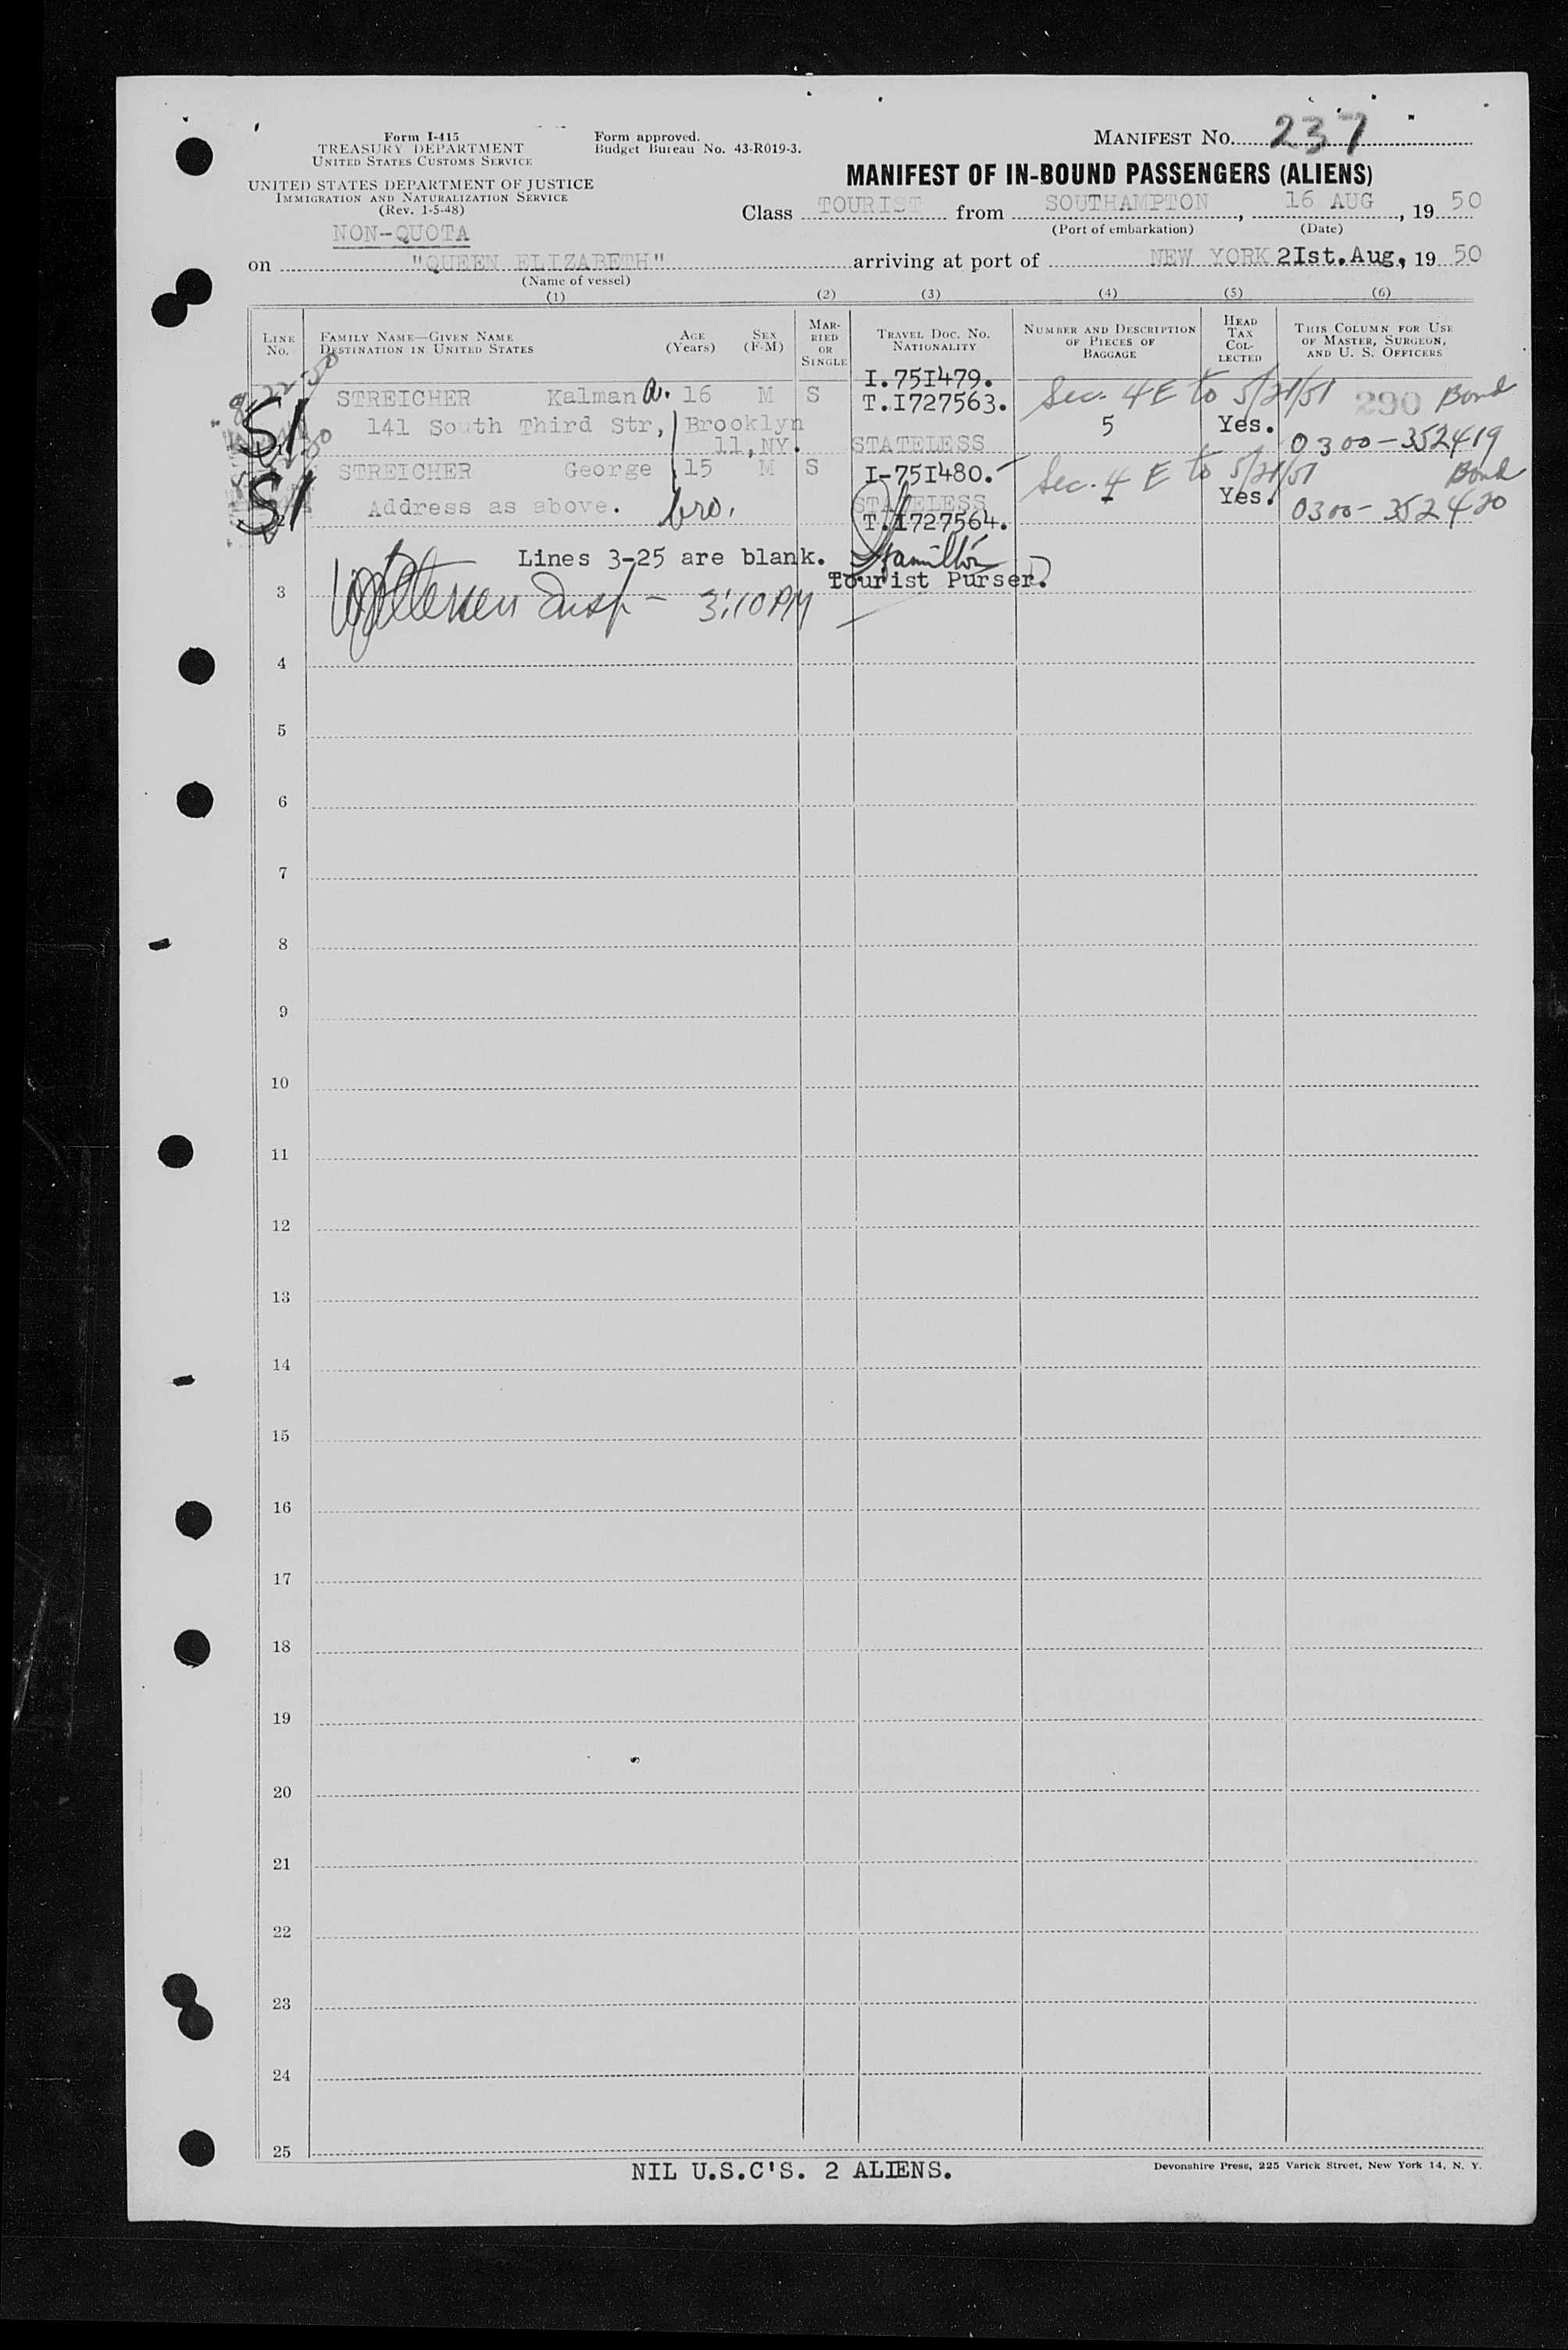 Form I-415
TREASURY DEPARTMENT
UNITED STATES CUSTOMS SERVICE
Form approved.
Budget Bureau No. 43-R019-3.
MANIFEST No. 237
UNITED STATES DEPARTMENT OF JUSTICE
IMMIGRATION AND NATURALIZATION SERVICE
(Rev. 1-5-48)
MANIFEST OF IN-BOUND PASSENGERS (ALIENS)
Class TOURIST from SOUTHAMPTON, 16 AUG, 19 50
(Port of embarkation) (Date)
NON-QUOTA
on "QUEEN ELIZABETH" arriving at port of NEW YORK 2Ist.Aug, 19 50
(Name of vessel)
(1) (2) (3) (4) (5) (6)
LINE No.
FAMILY NAME—GIVEN NAME
DESTINATION IN UNITED STATES
AGE (Years)
SEX (F-M)
MARRIED OR SINGLE
TRAVEL DOC. No.
NATIONALITY
NUMBER AND DESCRIPTION OF PIECES OF BAGGAGE
HEAD TAX COLLECTED
THIS COLUMN FOR USE OF MASTER, SURGEON, AND U. S. OFFICERS
8-22-50
SI
STREICHER Kalman A. 16 M S I.75I479. T.I727563. Sec. 4E to 5/21/51 290 Bond
141 South Third Str, Brooklyn 5 Yes.
11,NY. STATELESS 0300-352419
STREICHER George 15 M S I-75I480. Sec. 4 E to 5/21/51 Bond
SI
Address as above. bro. STATELESS - Yes. 0300-352420
T.I727564.
Lines 3-25 are blank. Hamilton
Tourist Purser.
3 Insp - 3:10 PM
4
5
6
7
8
9
10
11
12
13
14
15
16
17
18
19
20
21
22
23
24
25
NIL U.S.C'S. 2 ALIENS.
Devonshire Press, 225 Varick Street, New York 14, N. Y.